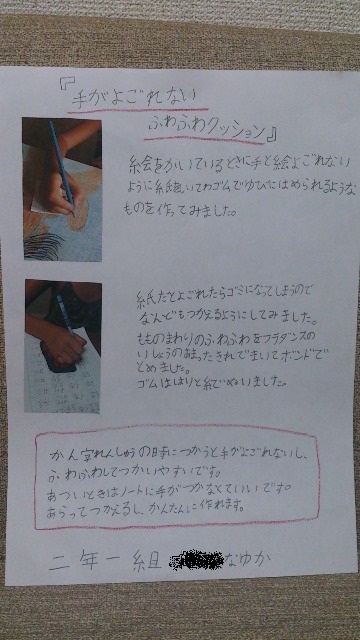 『手がよごれない
ふわふわクッション』
絵をかいているときに手と絵よごれない
ように紙をまいてわゴムでゆびにはめられるような
ものを作ってみました。
紙だとよごれたらゴミになってしまうので
なんどもつかえるようにしてみました。
もものまわりのふわふわをフラダンスの
いしょうのあまったきれでまいてボンドで
とめました。
ゴムははりと糸でぬいました。
かん字れんしゅうの時につかうと手がよごれないし、
ふわふわしてつかいやすいです。
あついときはノートに手がつかなくていいです。
あらってつかえるし、かんたんに作れます。
二年一組 なゆか